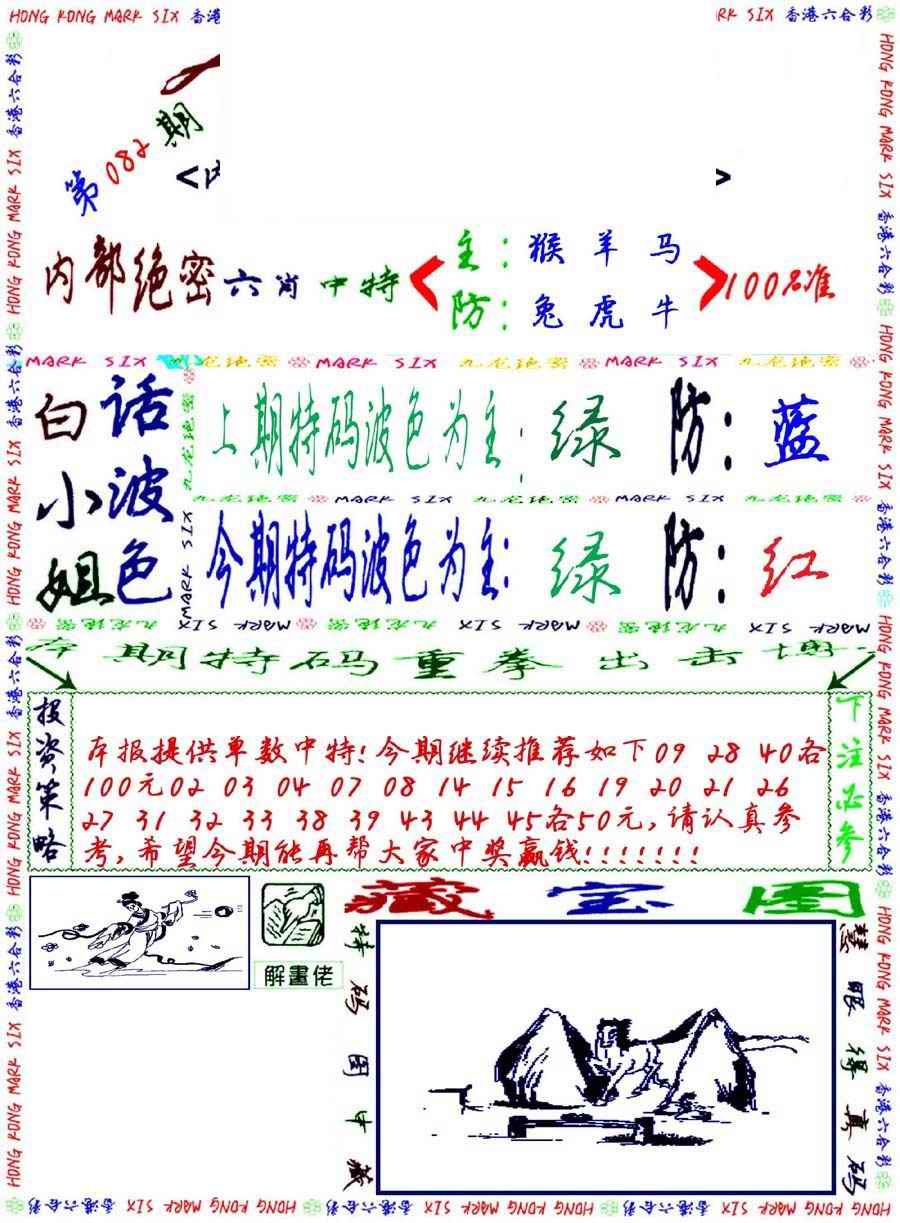 HONG KONG MARK SIX 香港
RK SIX 香港六合彩
第082期
<
>
内部绝密六肖中特
主：猴羊马
防：兔虎牛
100%准
MARK SIX 九龙绝密 MARK SIX 九龙绝密 MARK SIX 九龙绝密
白话
小波
姐色
上期特码波色为主：绿 防：蓝
九龙绝密 MARK SIX 九龙绝密 MARK SIX 九龙绝密
今期特码波色为主：绿 防：红
MARK SIX 九龙绝密 MARK SIX 九龙绝密 MARK SIX
期特码重拳出击
投资策略
本报提供单数中特!今期继续推荐如下09 28 40各
100元02 03 04 07 08 14 15 16 19 20 21 26
27 31 32 33 38 39 43 44 45各50元,请认真参
考,希望今期能再帮大家中奖赢钱!!!!!!!
下注必参
解畫佬
藏宝图
特码图中藏
慧眼得真码
HONG KONG MARK SIX 香港六合彩 HONG KONG MARK SIX 香港六合彩 HONG KONG MARK SIX 香港六合彩